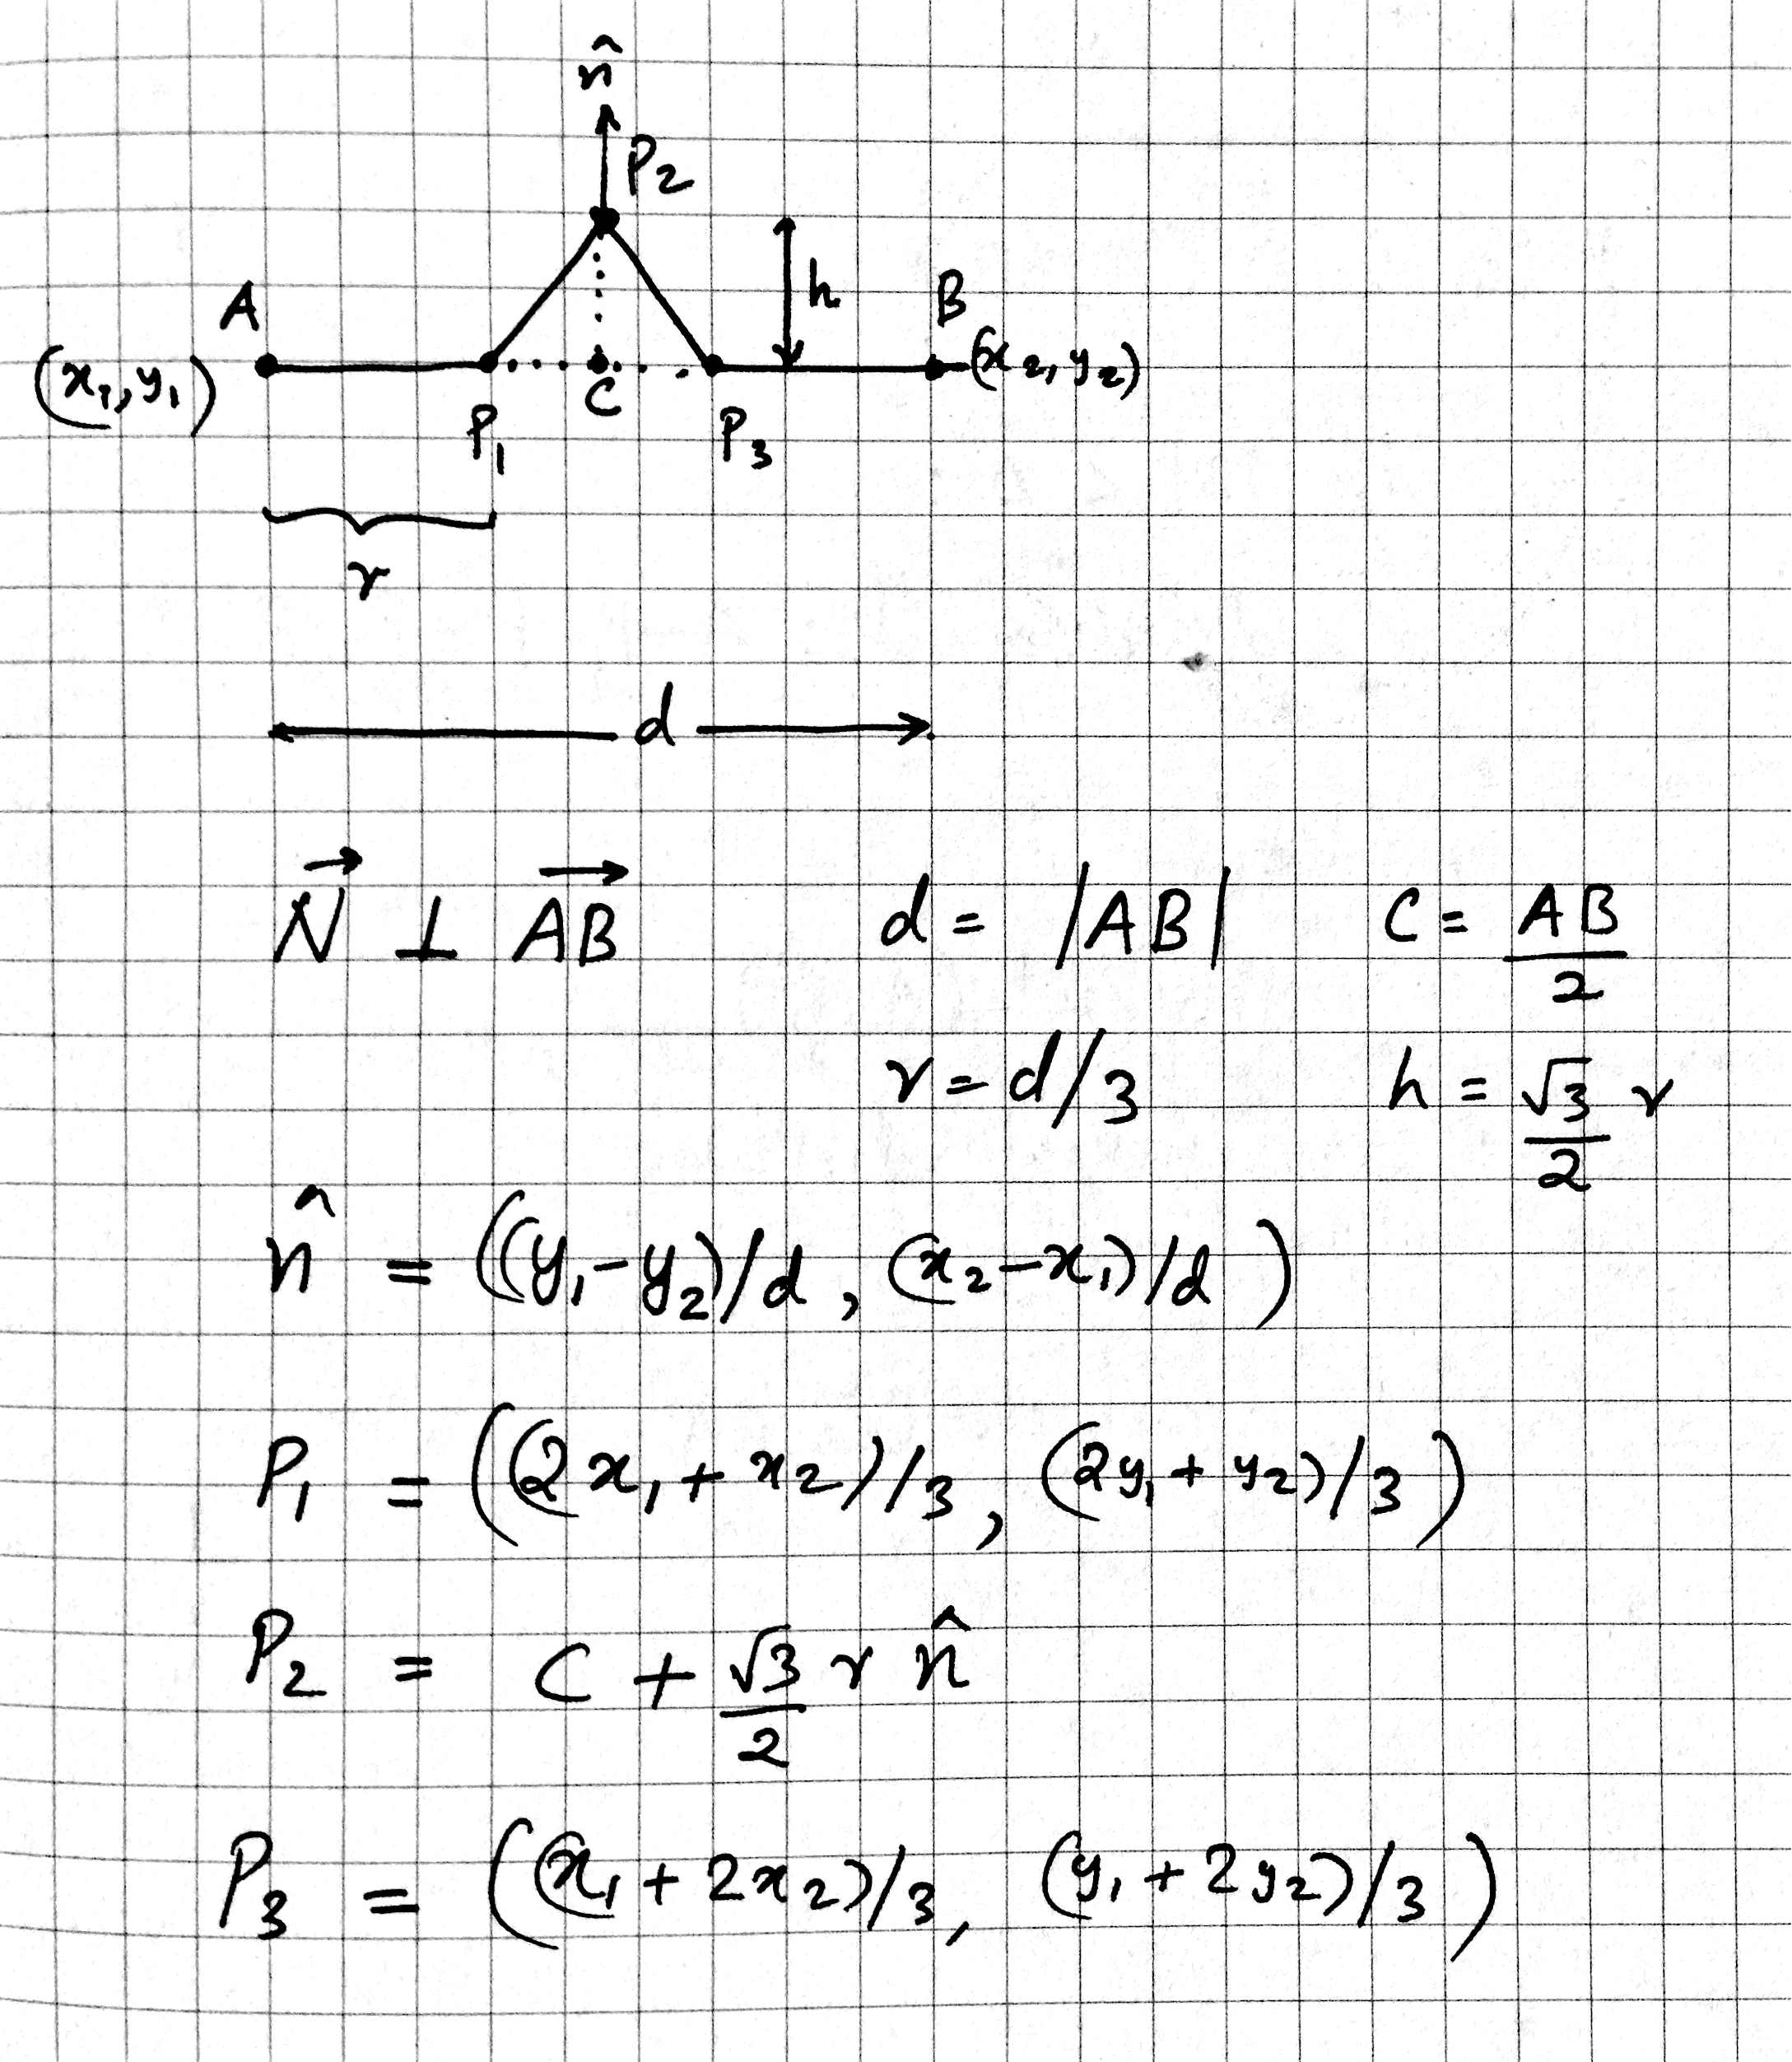 n̂
P₂
h
A
B
(x₁, y₁)
(x₂, y₂)
C
P₁
P₃
r
d
N⃗ ⊥ A͞B⃗ d = |AB| C = AB/2
r = d/3 h = √3/2 r
n̂ = ((y₁-y₂)/d, (x₂-x₁)/d)
P₁ = ((2x₁+x₂)/3, (2y₁+y₂)/3)
P₂ = C + √3/2 r n̂
P₃ = ((x₁+2x₂)/3, (y₁+2y₂)/3)